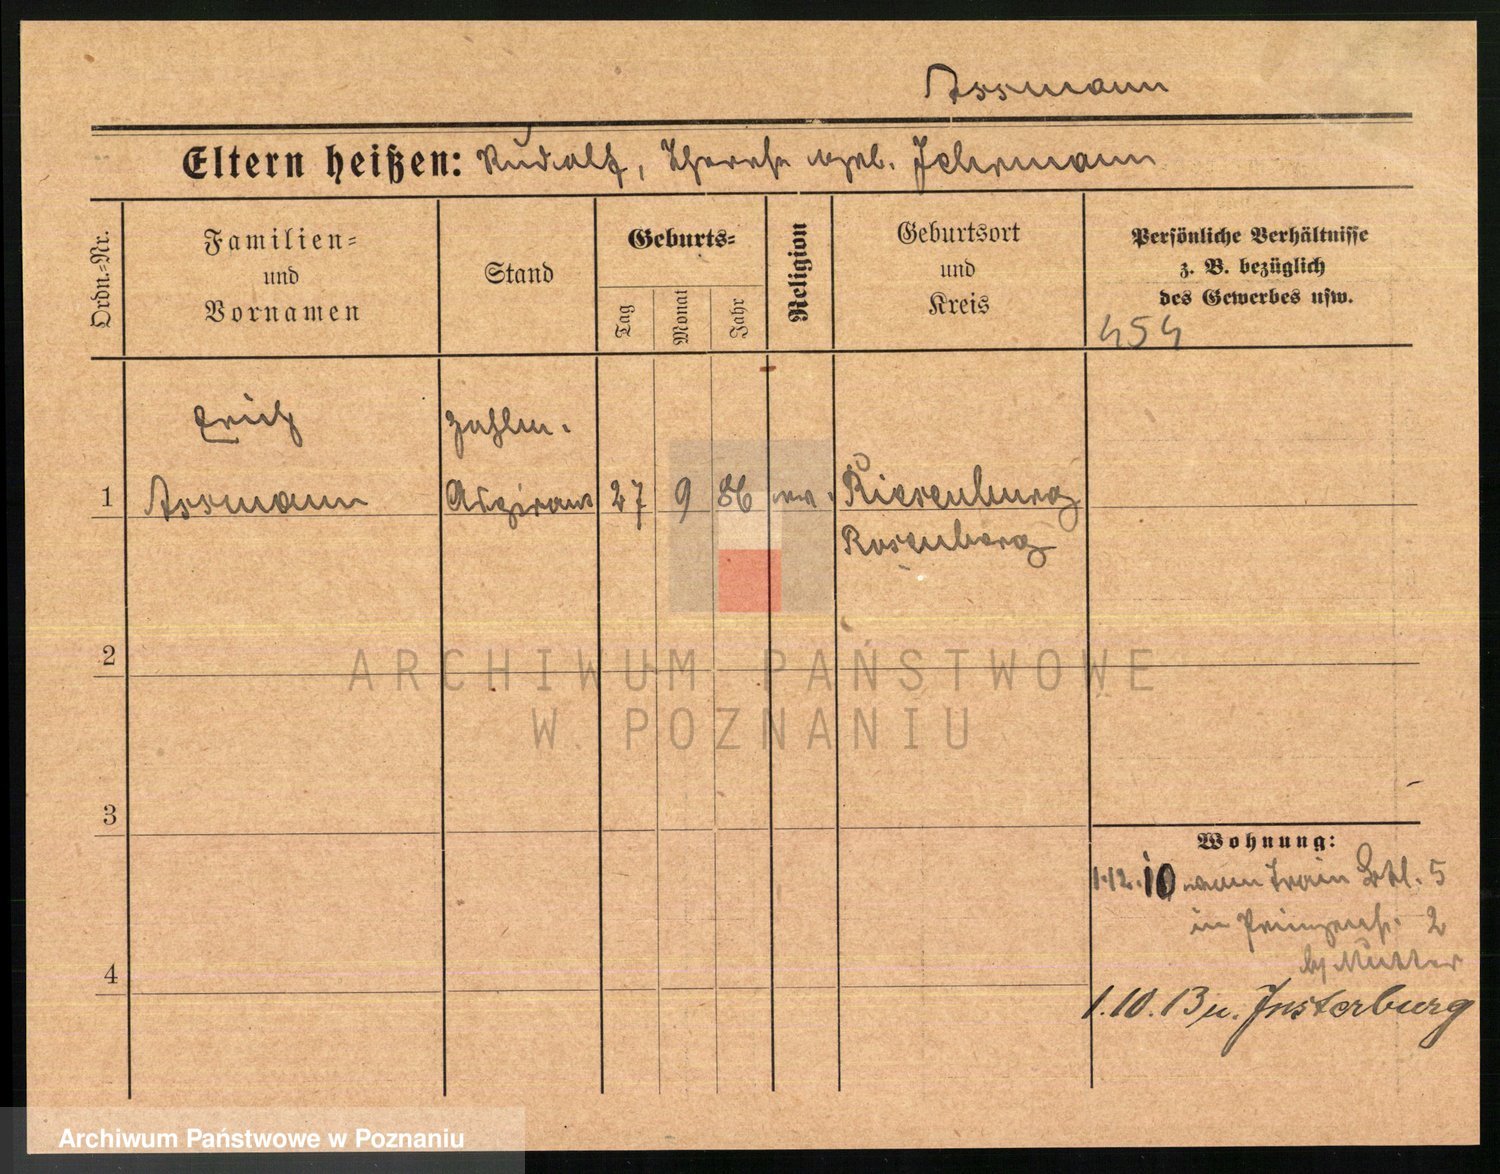 Assmann
Eltern heißen: Rudolf, Therese geb. Jehrmann
Ordn.=Nr.
Familien=
und
Vornamen
Stand
Geburts=
Tag
Monat
Jahr
Religion
Geburtsort
und
Kreis
Persönliche Verhältnisse
z. B. bezüglich
des Gewerbes usw.
454
Erich
Zahlm.
1 Assmann Aspirant 27 9 86 ev. Riesenburg
Rosenberg
2
ARCHIWUM PAŃSTWOWE
W POZNANIU
3
Wohnung:
1.12.10 vom Train Btl. 5
in Prinzenstr. 2
b/ Mutter
4
1.10.13 n. Insterburg
Archiwum Państwowe w Poznaniu